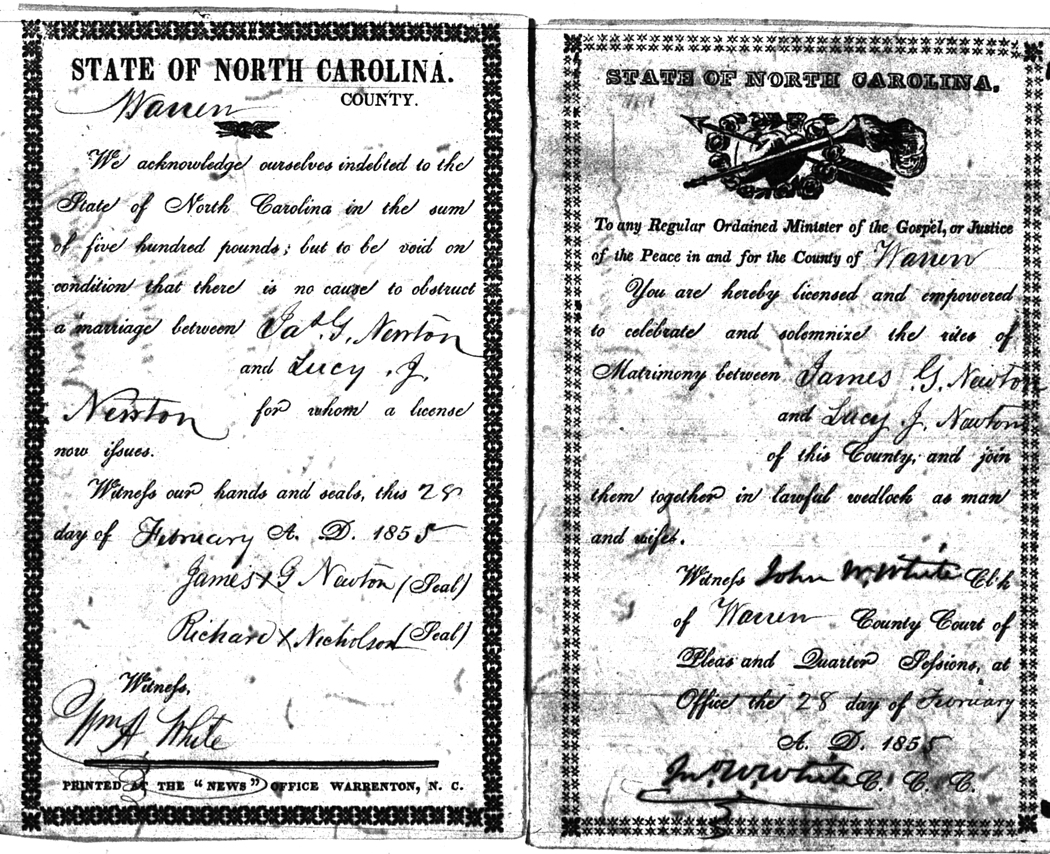 STATE OF NORTH CAROLINA.
Warren COUNTY.
We acknowledge ourselves indebted to the
State of North Carolina in the sum
of five hundred pounds; but to be void on
condition that there is no cause to obstruct
a marriage between Jas. G. Newton
and Lucy J.
Newton for whom a license
now issues.
Witness our hands and seals, this 28
day of February A. D. 1855
James X G Newton (Seal)
Richard X Nicholson (Seal)
Witness,
Wm A White
PRINTED AT THE "NEWS" OFFICE WARRENTON, N. C.
STATE OF NORTH CAROLINA.
To any Regular Ordained Minister of the Gospel, or Justice
of the Peace in and for the County of Warren
You are hereby licensed and empowered
to celebrate and solemnize the rites of
Matrimony between James G. Newton
and Lucy J. Newton
of this County, and join
them together in lawful wedlock as man
and wife.
Witness John W. White Cl'k
of Warren County Court of
Pleas and Quarter Sessions, at
Office the 28 day of February
A. D. 1855
Jno. W. White C. C. C.